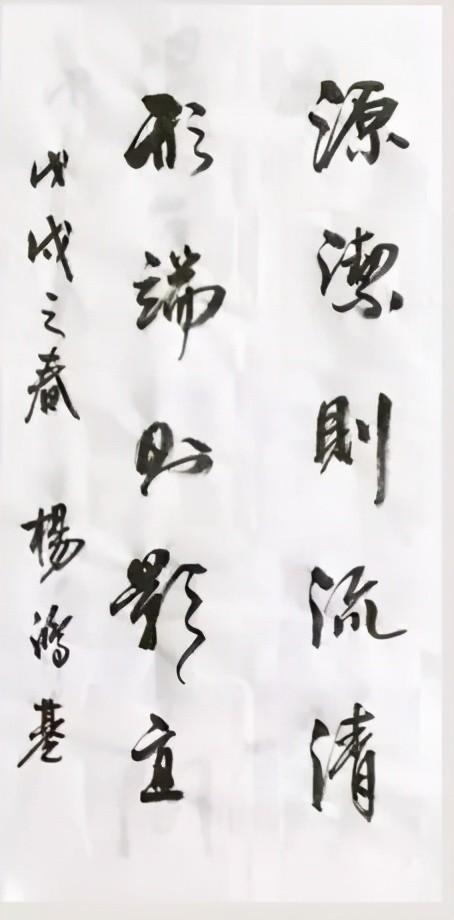 源潔則流清
形端則影直
戊戌之春 楊鴻基